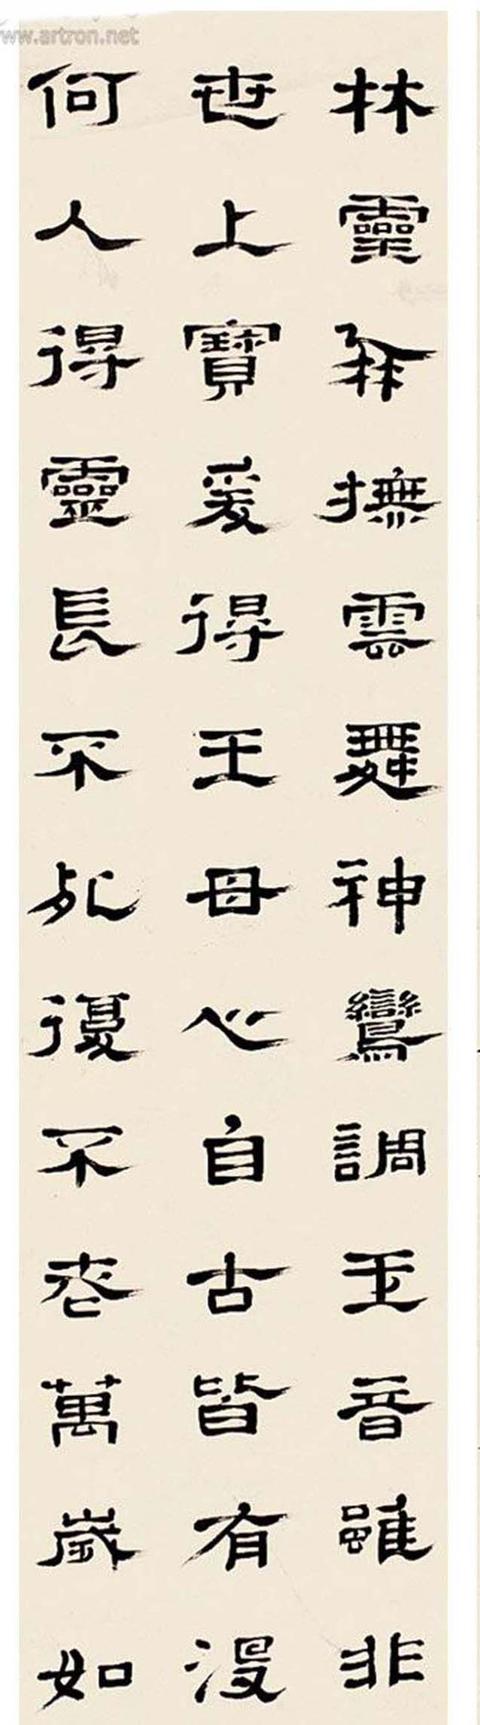 www.artron.net
林靈𣏌撫雲舞神鸞調玉音雖非
世上寶爰得王母心自古皆有沒
何人得靈長不死復不老萬歲如